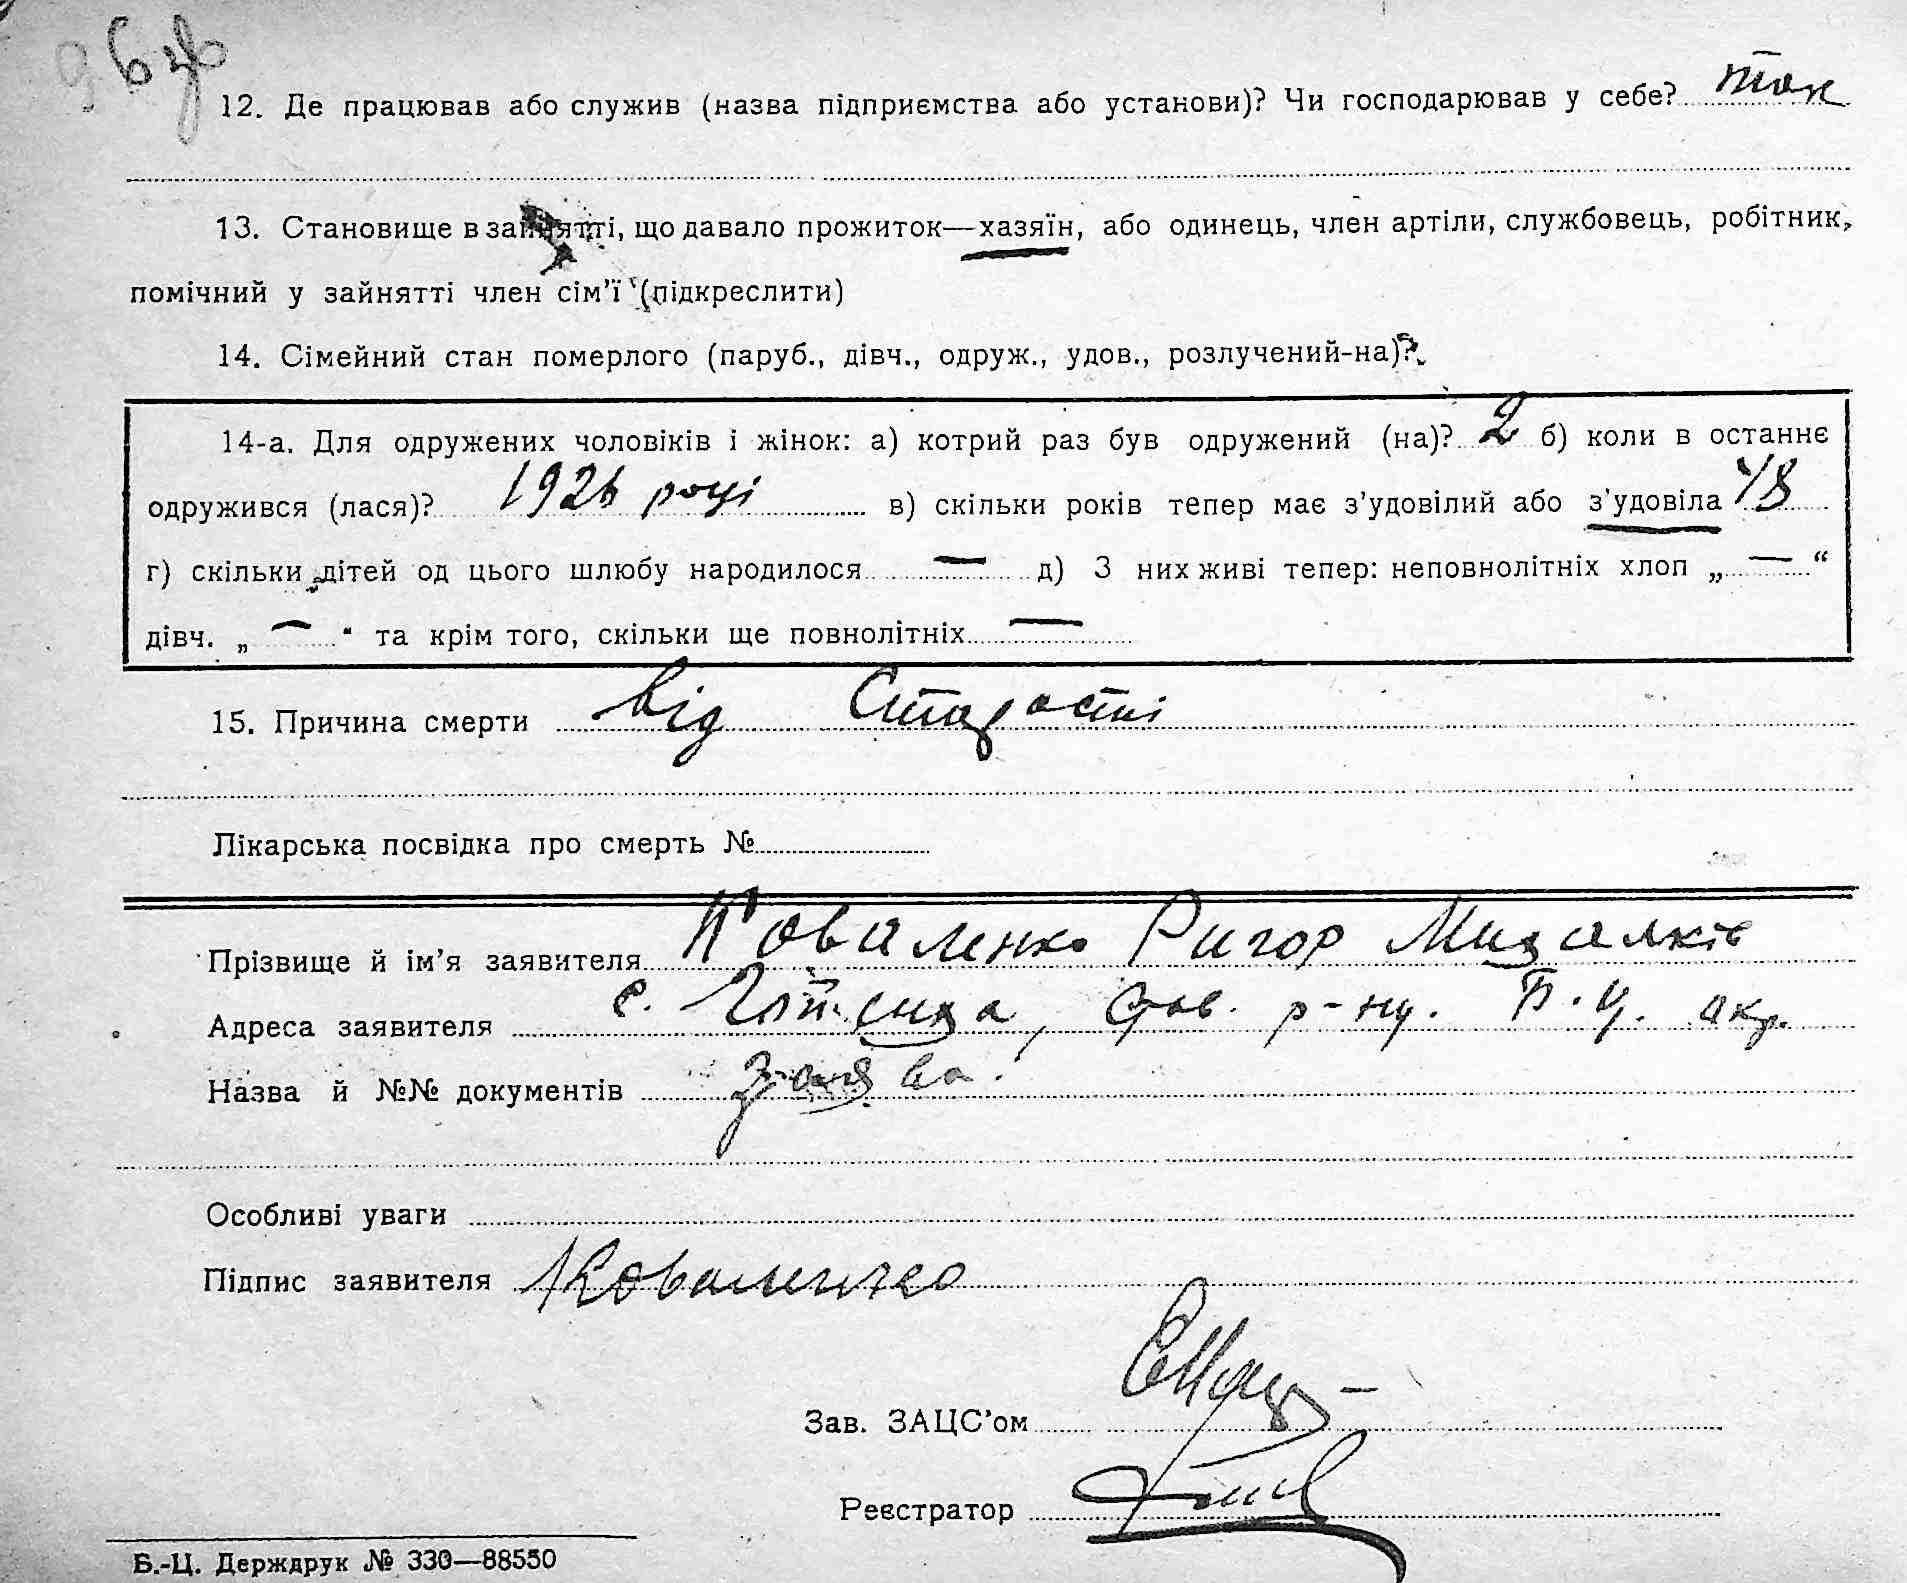 96 зв
12. Де працював або служив (назва підприємства або установи)? Чи господарював у себе? так
13. Становище в зайнятті, що давало прожиток—хазяїн, або одинець, член артіли, службовець, робітник,
помічний у зайнятті член сім'ї (підкреслити)
14. Сімейний стан померлого (паруб., дівч., одруж., удов., розлучений-на)?
14-а. Для одружених чоловіків і жінок: а) котрий раз був одружений (на)? 2 б) коли в останнє
одружився (лася)? 1926 році в) скільки років тепер має з'удовілий або з'удовіла 48
г) скільки дітей од цього шлюбу народилося — д) З них живі тепер: неповнолітніх хлоп „ — “
дівч. „ — “ та крім того, скільки ще повнолітніх —
15. Причина смерти від Старости
Лікарська посвідка про смерть №
Прізвище й ім'я заявителя Коваленко Ригор Михалків
Адреса заявителя с. р-ну. Б.Ц. окр.
Назва й №№ документів заява
Особливі уваги
Підпис заявителя Коваленко
Зав. ЗАЦС'ом
Реєстратор
Б.-Ц. Держдрук № 330—88550